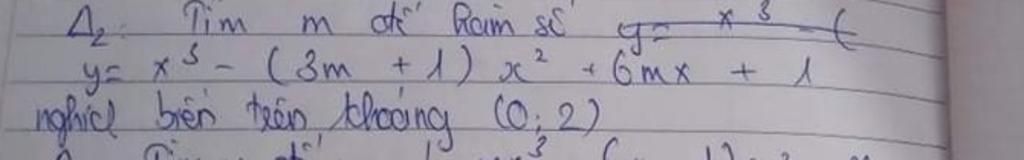 A2: Tìm m để hàm số
y = x³ - (3m + 1) x² + 6mx + 1
nghịch biến trên khoảng (0; 2)